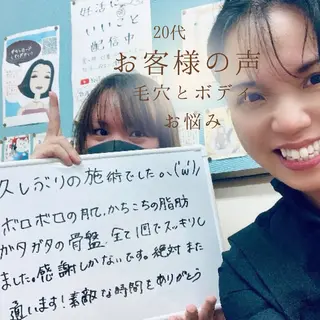 妊活を
いい
と
配信中
20代
お客様の声
毛穴とボディ
お悩み
久しぶりの施術でした。('ω')
ボロボロの肌、かちこちの脂肪
ガタガタの骨盤 全て1回でスッキリし
ました。感謝しかないです。絶対また
通います！素敵な時間をありがとう